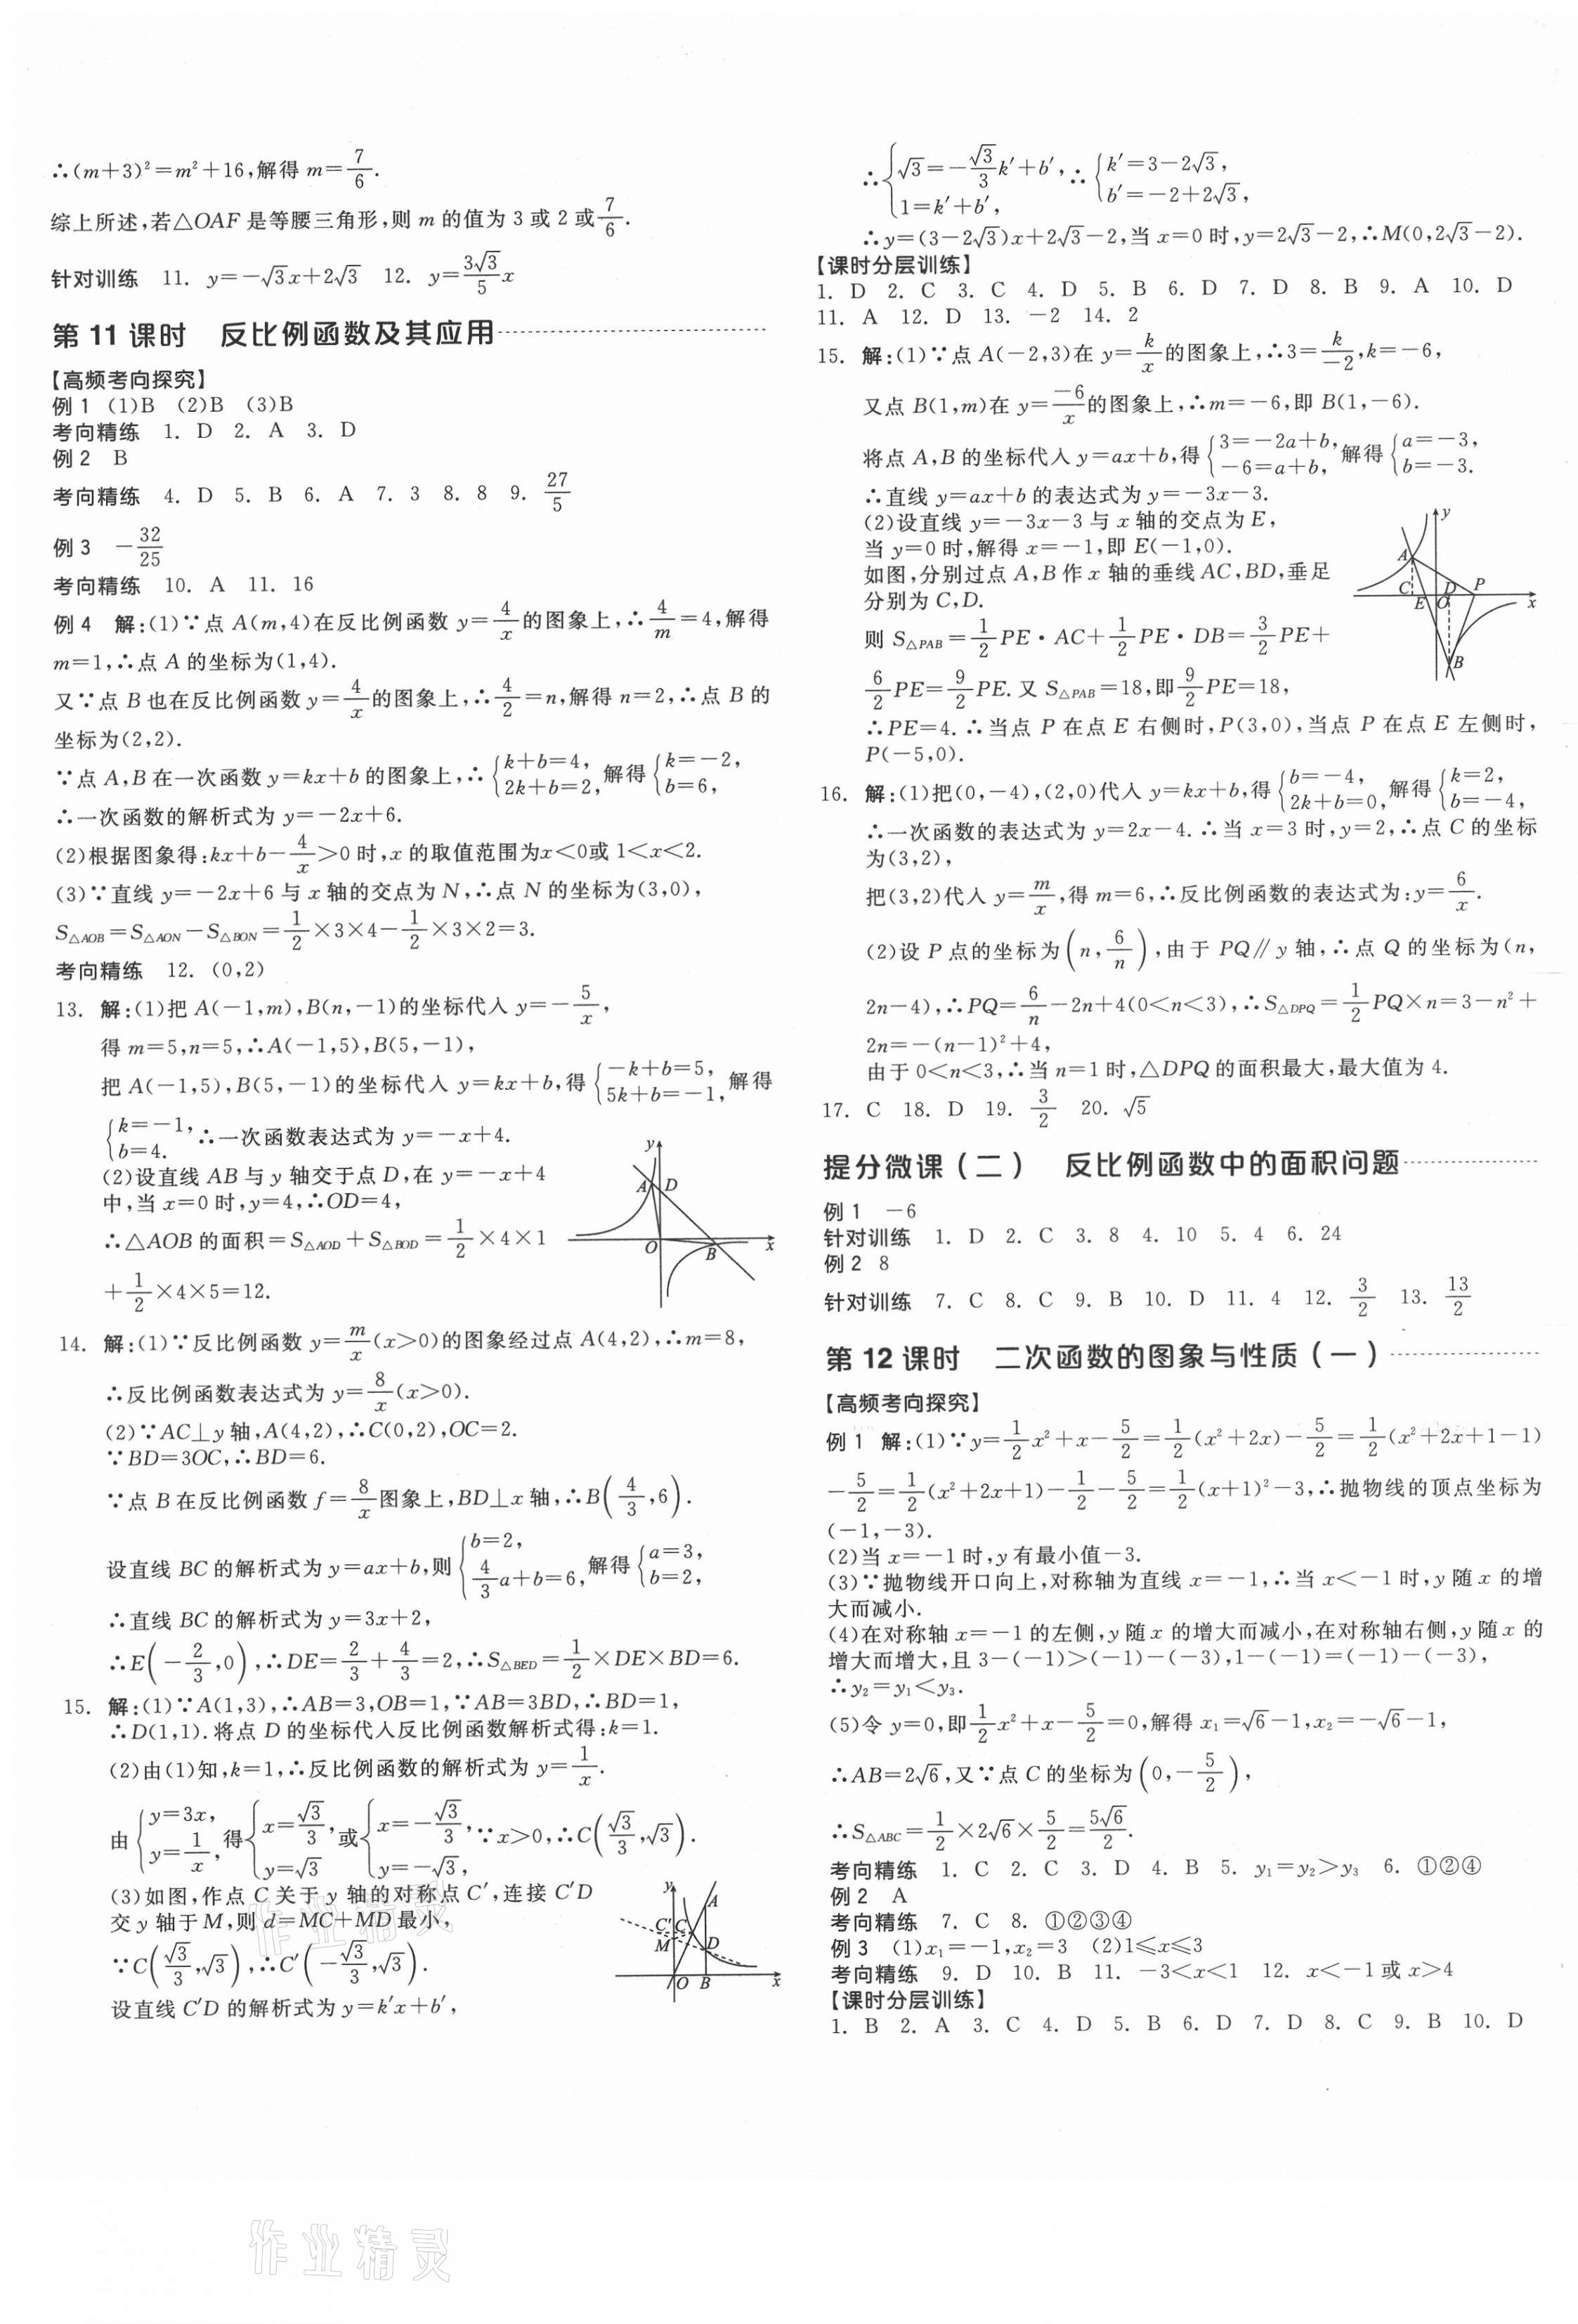 ∴(m+3)²=m²+16,解得 m=7/6.
综上所述,若△OAF 是等腰三角形,则 m 的值为 3 或 2 或7/6.
针对训练 11. y=-√3x+2√3 12. y=3√3/5 x
第 11 课时 反比例函数及其应用
【高频考向探究】
例 1 (1)B (2)B (3)B
考向精练 1. D 2. A 3. D
例 2 B
考向精练 4. D 5. B 6. A 7. 3 8. 8 9. 27/5
例 3 -32/25
考向精练 10. A 11. 16
例 4 解:(1)∵点 A(m,4)在反比例函数 y=4/x的图象上,∴4/m=4,解得
m=1,∴点 A 的坐标为(1,4).
又∵点 B 也在反比例函数 y=4/x的图象上,∴4/2=n,解得 n=2,∴点 B 的
坐标为(2,2).
∵点 A,B 在一次函数 y=kx+b 的图象上,∴{k+b=4, 2k+b=2,解得{k=-2, b=6,
∴一次函数的解析式为 y=-2x+6.
(2)根据图象得:kx+b-4/x>0 时,x 的取值范围为x<0或 1<x<2.
(3)∵直线 y=-2x+6 与 x 轴的交点为 N,∴点 N 的坐标为(3,0),
S△AOB=S△AON-S△BON=1/2×3×4-1/2×3×2=3.
考向精练 12. (0,2)
13. 解:(1)把 A(-1,m),B(n,-1)的坐标代入 y=-5/x,
得 m=5,n=5,∴A(-1,5),B(5,-1),
把 A(-1,5),B(5,-1)的坐标代入 y=kx+b,得{-k+b=5, 5k+b=-1,解得
{k=-1, b=4. ∴一次函数表达式为 y=-x+4.
(2)设直线 AB 与 y 轴交于点 D,在 y=-x+4
中,当 x=0 时,y=4,∴OD=4,
∴△AOB 的面积=S△AOD+S△BOD=1/2×4×1
+1/2×4×5=12.
y
A
D
O
B
x
14. 解:(1)∵反比例函数 y=m/x(x>0)的图象经过点 A(4,2),∴m=8,
∴反比例函数表达式为 y=8/x(x>0).
(2)∵AC⊥y 轴,A(4,2),∴C(0,2),OC=2.
∵BD=3OC,∴BD=6.
∵点 B 在反比例函数 f=8/x图象上,BD⊥x 轴,∴B(4/3,6).
设直线 BC 的解析式为 y=ax+b,则{b=2, 4/3a+b=6,解得{a=3, b=2,
∴直线 BC 的解析式为 y=3x+2,
∴E(-2/3,0),∴DE=2/3+4/3=2,∴S△BED=1/2×DE×BD=6.
15. 解:(1)∵A(1,3),∴AB=3,OB=1,∵AB=3BD,∴BD=1,
∴D(1,1).将点 D 的坐标代入反比例函数解析式得:k=1.
(2)由(1)知,k=1,∴反比例函数的解析式为 y=1/x.
由{y=3x, y=1/x,得{x=√3/3, y=√3或{x=-√3/3, y=-√3,∵x>0,∴C(√3/3,√3).
(3)如图,作点 C 关于 y 轴的对称点 C′,连接 C′D
交 y 轴于 M,则 d=MC+MD 最小,
∵C(√3/3,√3),∴C′(-√3/3,√3).
设直线 C′D 的解析式为 y=k′x+b′,
y
A
C′
C
M
D
O
B
x
∴{√3=-√3/3k′+b′, 1=k′+b′,∴{k′=3-2√3, b′=-2+2√3,
∴y=(3-2√3)x+2√3-2,当 x=0 时,y=2√3-2,∴M(0,2√3-2).
【课时分层训练】
1. D 2. C 3. C 4. D 5. B 6. D 7. D 8. B 9. A 10. D
11. A 12. D 13. -2 14. 2
15. 解:(1)∵点 A(-2,3)在 y=k/x的图象上,∴3=k/-2,k=-6,
又点 B(1,m)在 y=-6/x的图象上,∴m=-6,即 B(1,-6).
将点 A,B 的坐标代入 y=ax+b,得{3=-2a+b, -6=a+b,解得{a=-3, b=-3.
∴直线 y=ax+b 的表达式为 y=-3x-3.
(2)设直线 y=-3x-3 与 x 轴的交点为 E,
当 y=0 时,解得 x=-1,即 E(-1,0).
如图,分别过点 A,B 作 x 轴的垂线 AC,BD,垂足
分别为 C,D.
则 S△PAB=1/2PE·AC+1/2PE·DB=3/2PE+
6/2PE=9/2PE. 又 S△PAB=18,即9/2PE=18,
∴PE=4. ∴当点 P 在点 E 右侧时,P(3,0),当点 P 在点 E 左侧时,
P(-5,0).
y
A
C
D
P
E
O
x
B
16. 解:(1)把(0,-4),(2,0)代入 y=kx+b,得{b=-4, 2k+b=0,解得{k=2, b=-4,
∴一次函数的表达式为 y=2x-4. ∴当 x=3 时,y=2,∴点 C 的坐标
为(3,2),
把(3,2)代入 y=m/x,得 m=6,∴反比例函数的表达式为:y=6/x.
(2)设 P 点的坐标为(n,6/n),由于 PQ∥y 轴,∴点 Q 的坐标为(n,
2n-4),∴PQ=6/n-2n+4(0<n<3),∴S△DPQ=1/2PQ×n=3-n²+
2n=-(n-1)²+4,
由于 0<n<3,∴当 n=1 时,△DPQ 的面积最大,最大值为 4.
17. C 18. D 19. 3/2 20. √5
提分微课(二) 反比例函数中的面积问题
例 1 -6
针对训练 1. D 2. C 3. 8 4. 10 5. 4 6. 24
例 2 8
针对训练 7. C 8. C 9. B 10. D 11. 4 12. 3/2 13. 13/2
第 12 课时 二次函数的图象与性质(一)
【高频考向探究】
例 1 解:(1)∵y=1/2x²+x-5/2=1/2(x²+2x)-5/2=1/2(x²+2x+1-1)
-5/2=1/2(x²+2x+1)-1/2-5/2=1/2(x+1)²-3,∴抛物线的顶点坐标为
(-1,-3).
(2)当 x=-1 时,y 有最小值-3.
(3)∵抛物线开口向上,对称轴为直线 x=-1,∴当 x<-1 时,y 随 x 的增
大而减小.
(4)在对称轴 x=-1 的左侧,y 随 x 的增大而减小,在对称轴右侧,y 随 x 的
增大而增大,且 3-(-1)>(-1)-(-3),1-(-1)=(-1)-(-3),
∴y₂=y₁<y₃.
(5)令 y=0,即1/2x²+x-5/2=0,解得 x₁=√6-1,x₂=-√6-1,
∴AB=2√6,又∵点 C 的坐标为(0,-5/2),
∴S△ABC=1/2×2√6×5/2=5√6/2.
考向精练 1. C 2. C 3. D 4. B 5. y₁=y₂>y₃ 6. ①②④
例 2 A
考向精练 7. C 8. ①②③④
例 3 (1)x₁=-1,x₂=3 (2)1≤x≤3
考向精练 9. D 10. B 11. -3<x<1 12. x<-1 或 x>4
【课时分层训练】
1. B 2. A 3. C 4. D 5. B 6. D 7. D 8. C 9. B 10. D
作业精灵
作业精灵